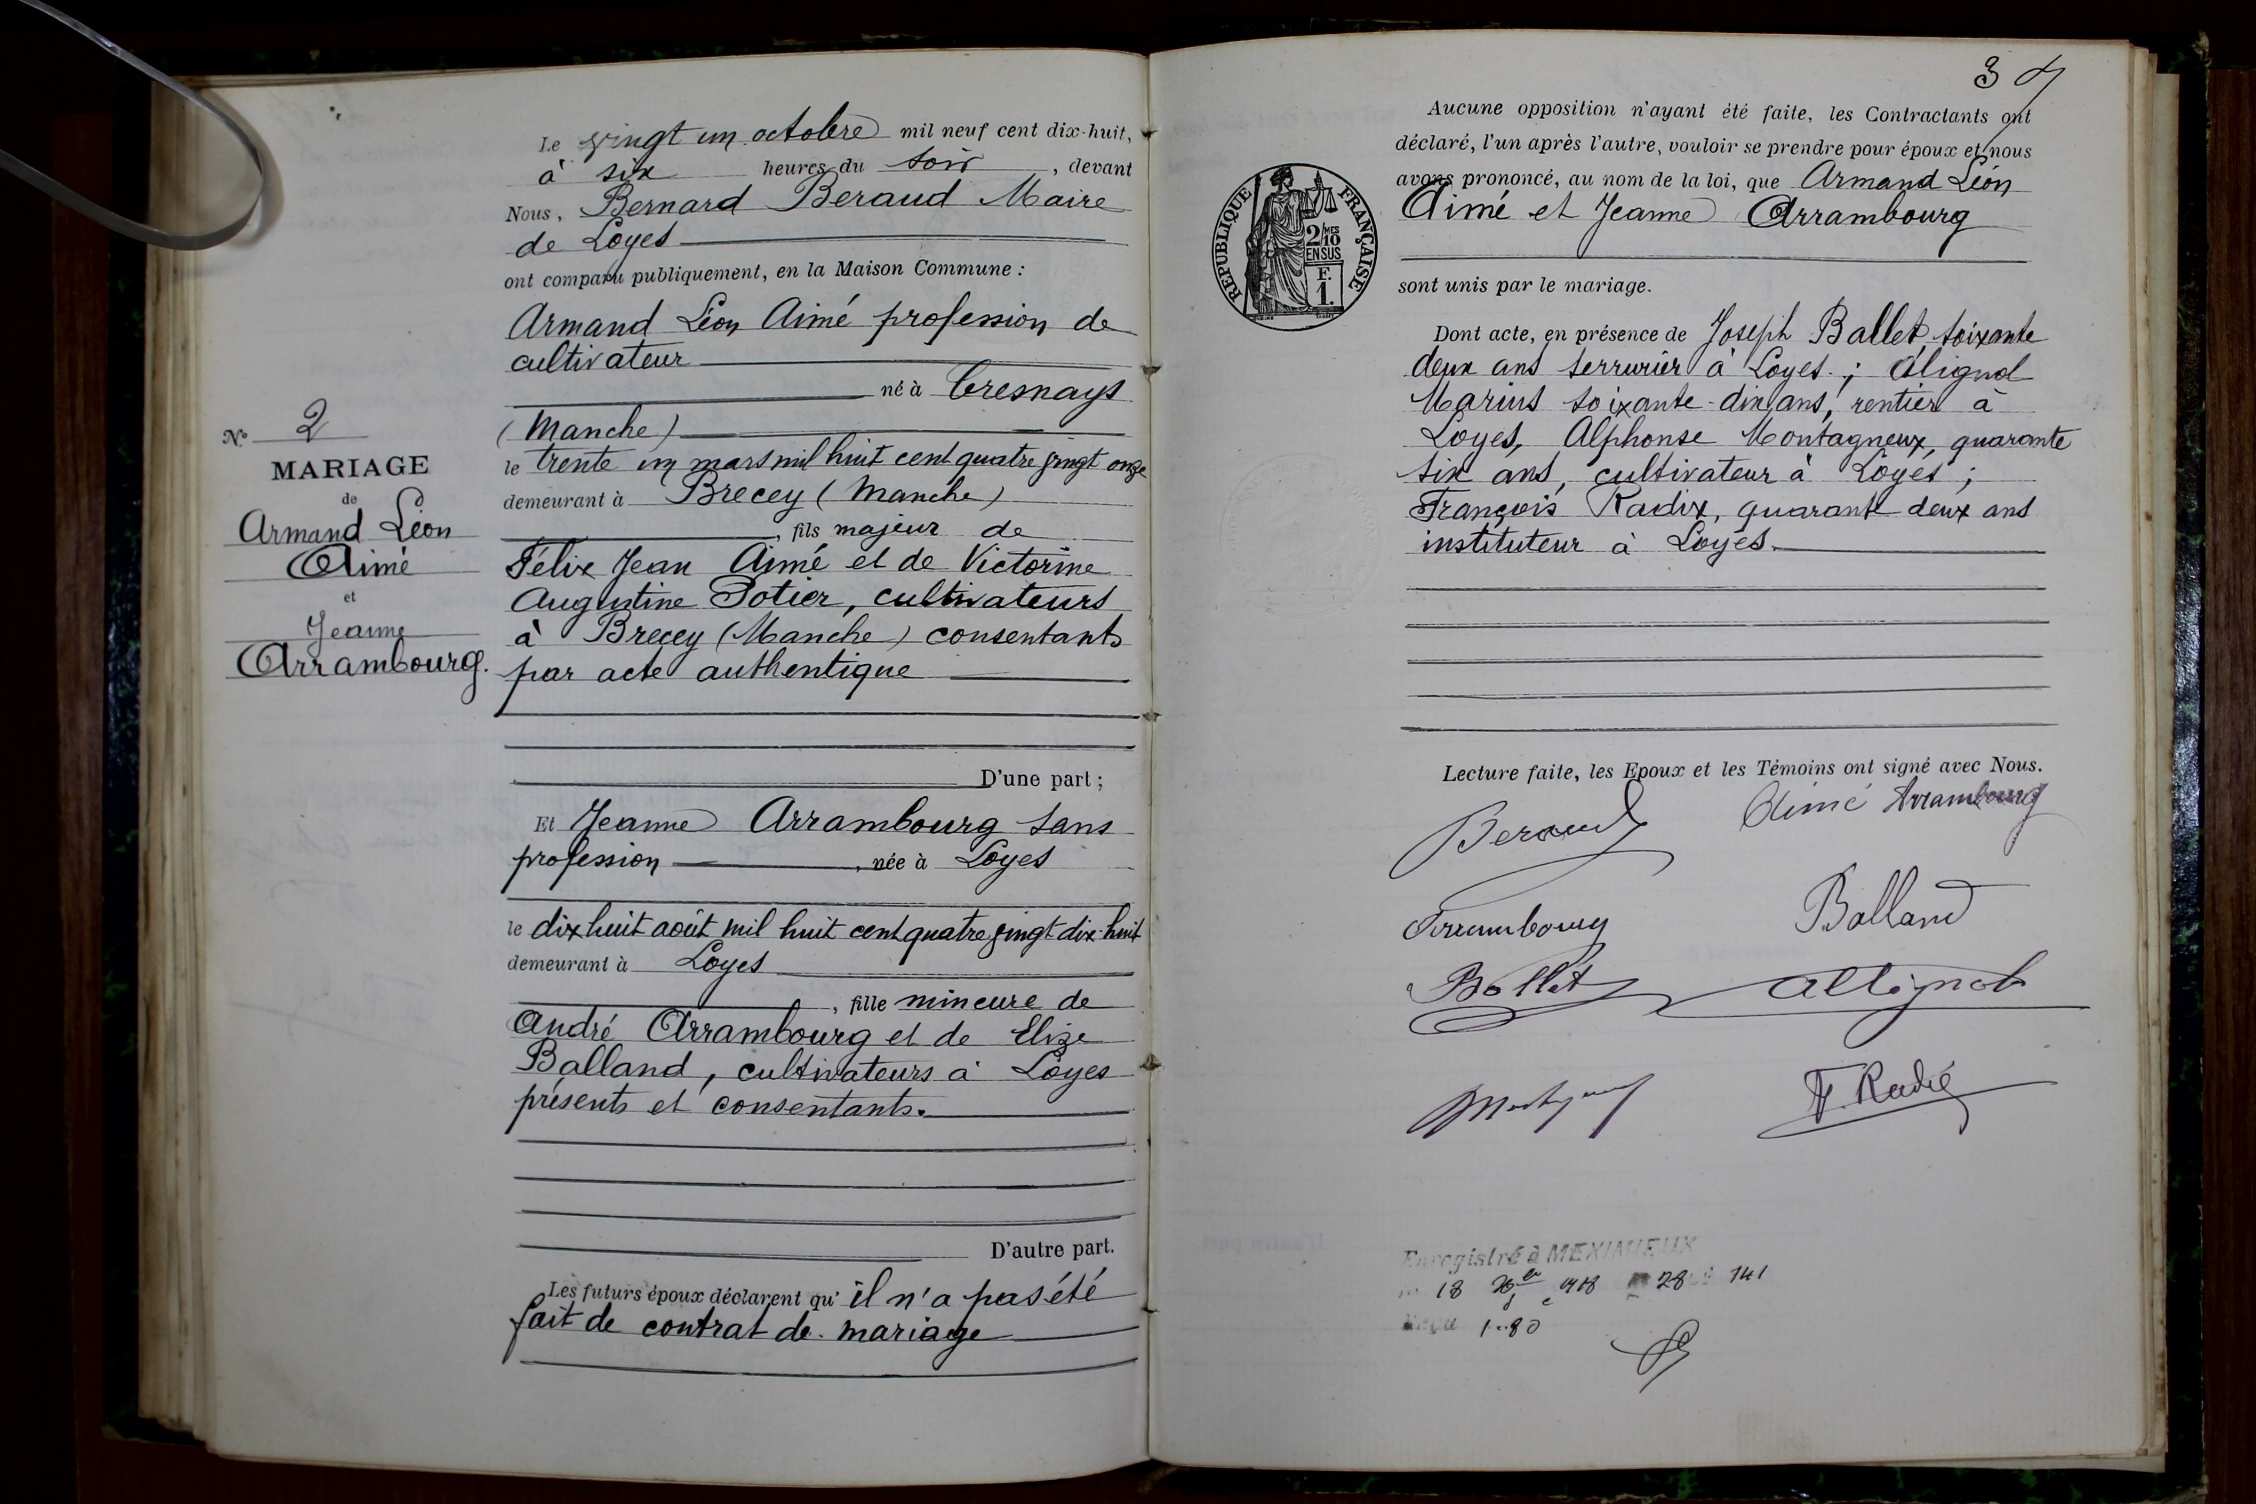 Le vingt un octobre mil neuf cent dix-huit,
à six heures du soir, devant
Nous, Bernard Beraud Maire
de Loyes
ont comparu publiquement, en la Maison Commune :
Armand Léon Aimé profession de
cultivateur
né à Cresnays
(Manche)
le trente un mars mil huit cent quatre vingt onze
demeurant à Brecey (Manche)
, fils majeur de
Félix Jean Aimé et de Victorine
Augustine Potier, cultivateurs
à Brecey (Manche) consentants
par acte authentique
D'une part ;
Et Jeanne Arrambourg sans
profession, née à Loyes
le dix huit août mil huit cent quatre vingt dix-huit
demeurant à Loyes
, fille mineure de
André Arrambourg et de Elize
Balland, cultivateurs à Loyes
présents et consentants.
D'autre part.
Les futurs époux déclarent qu' il n'a pas été
fait de contrat de mariage
N° 2
MARIAGE
de
Armand Léon
Aimé
et
Jeanne
Arrambourg.
3
Aucune opposition n'ayant été faite, les Contractants ont
déclaré, l'un après l'autre, vouloir se prendre pour époux et nous
avons prononcé, au nom de la loi, que Armand Léon
Aimé et Jeanne Arrambourg
sont unis par le mariage.
RÉPUBLIQUE FRANÇAISE
2/10 MES
EN SUS
F.
1.
Dont acte, en présence de Joseph Ballet soixante
deux ans serrurier à Loyes ; Alignol
Marius soixante-dix ans, rentier à
Loyes, Alphonse Montagneux, quarante
six ans, cultivateur à Loyes ;
François Radix, quarante deux ans
instituteur à Loyes.
Lecture faite, les Epoux et les Témoins ont signé avec Nous.
Beraud Aimé Arrambourg
Arrambourg Balland
Ballet Allignol
F. Radix
Enregistré à MEXIMIEUX
18 1918 28 141
Reçu 1.80